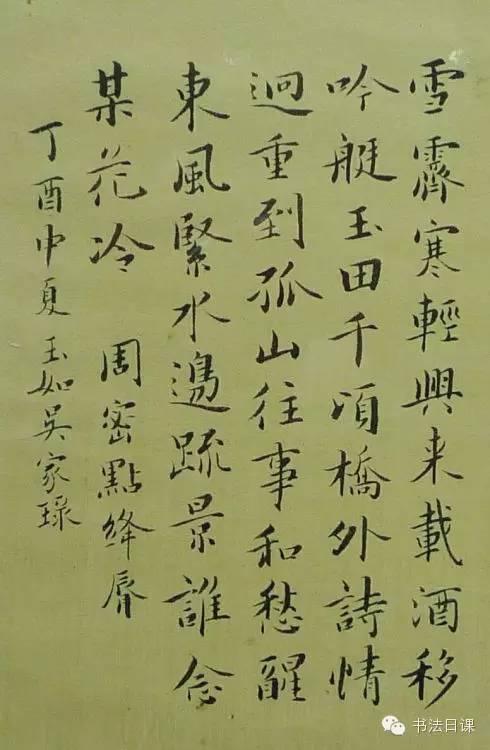 雪霽寒輕興来載酒移
吟艇玉田千頃橋外詩情
迥重到孤山往事和愁醒
東風緊水邊疏景誰念
某花冷 周密點絳脣
丁酉中夏玉如吳家琭
书法日课